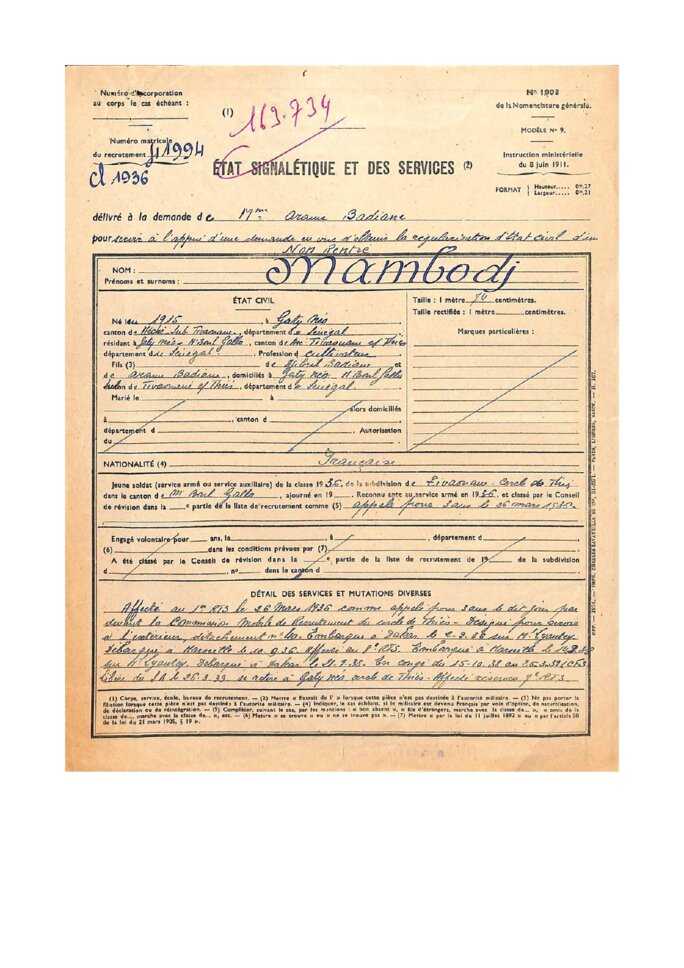 Numéro d'incorporation
au corps le cas échéant :
(1)
163.734
N° 1008
de la Nomenclature générale.
MODÈLE N° 9.
Numéro matricule
du recrutement 41994
cl 1936
ÉTAT SIGNALÉTIQUE ET DES SERVICES (2)
Instruction ministérielle
du 8 juin 1911.
FORMAT Hauteur..... 0m,27
Largeur..... 0m,21
délivré à la demande de Mme Arame Badiane
pour servir à l'appui d'une demande en vue d'obtenir la régularisation d'état civil d'un
Non Rentré
NOM :
Prénoms et surnoms :
Mambodj
ÉTAT CIVIL
Né le en 1915, à Gaty
canton de, département du Sénégal
résidant à Gaty M'Boul Gallo, canton de Tivaouane
département du Sénégal. Profession d cultivateur
Fils (3) de Badiane et
de Arame Badiane, domiciliés à Gaty M'Boul Gallo
de Tivaouane, département du Sénégal
Marié le à
alors domiciliés
à, canton d
département d Autorisation
du
Taille : 1 mètre centimètres.
Taille rectifiée : 1 mètre centimètres.
Marques particulières :
NATIONALITÉ (4) Française
Jeune soldat (service armé ou service auxiliaire) de la classe 1936, de la subdivision de Tivaouane. Cercle de Thiès
dans le canton de M'Boul Gallo, ajourné en 19 Reconnu apte au service armé en 1936, et classé par le Conseil
de révision dans la partie de la liste de recrutement comme (5) appelé pour 3 ans le 26 mars
Engagé volontaire pour ans, le à, département d
(6) dans les conditions prévues par (7)
A été classé par le Conseil de révision dans la e partie de la liste de recrutement de 19 de la subdivision
d, n° dans le canton d
DÉTAIL DES SERVICES ET MUTATIONS DIVERSES
Affecté au 1er RTS le 26 Mars 1936 comme appelé pour 3 ans le dit jour par
devant la Commission Mobile de Recrutement du cercle de Thiès. Désigné pour servir
à l'extérieur, détachement. Embarqué à Dakar le sur "Lyautey"
Débarqué à Marseille le 10.9.36 Affecté au RTS. Embarqué à Marseille le
sur "Lyautey" Débarqué à Dakar le. En congé du 15-10.38 au 25.3.39
Libéré du SA le 26.3.39. se retire à Gaty cercle de Thiès. Affecté réserves RTS.
(1) Corps, service, école, bureau de recrutement. — (2) Mettre « Extrait de l' » lorsque cette pièce n'est pas destinée à l'autorité militaire. — (3) Ne pas porter la
filiation lorsque cette pièce n'est pas destinée à l'autorité militaire. — (4) Indiquer, le cas échéant, si le militaire est devenu Français par voie d'option, de naturalisation,
de déclaration ou de réintégration. — (5) Compléter, suivant le cas, par les mentions : « bon absent », « fils d'étrangers, marche avec la classe de... », « omis de la
classe de..., marche avec la classe de... », etc. — (6) Mettre « se trouve » ou « ne se trouve pas ». — (7) Mettre « par la loi du 11 juillet 1892 » ou « par l'article 50
de la loi du 21 mars 1905, § 19 ».